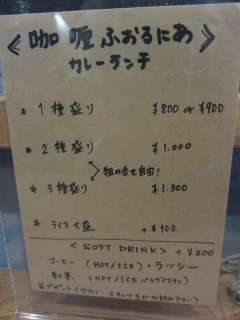 《咖喱ふぉるにあ》
カレーランチ
* 1種盛り ¥800 or ¥900
* 2種盛り ¥1.000
組み合せ自由!
* 3種盛り ¥1.300
* ライス大盛 +¥100
<SOFT DRINK> +¥200
コーヒー (HOT/ICE)・ラッシー
紅茶 (HOT/ICE